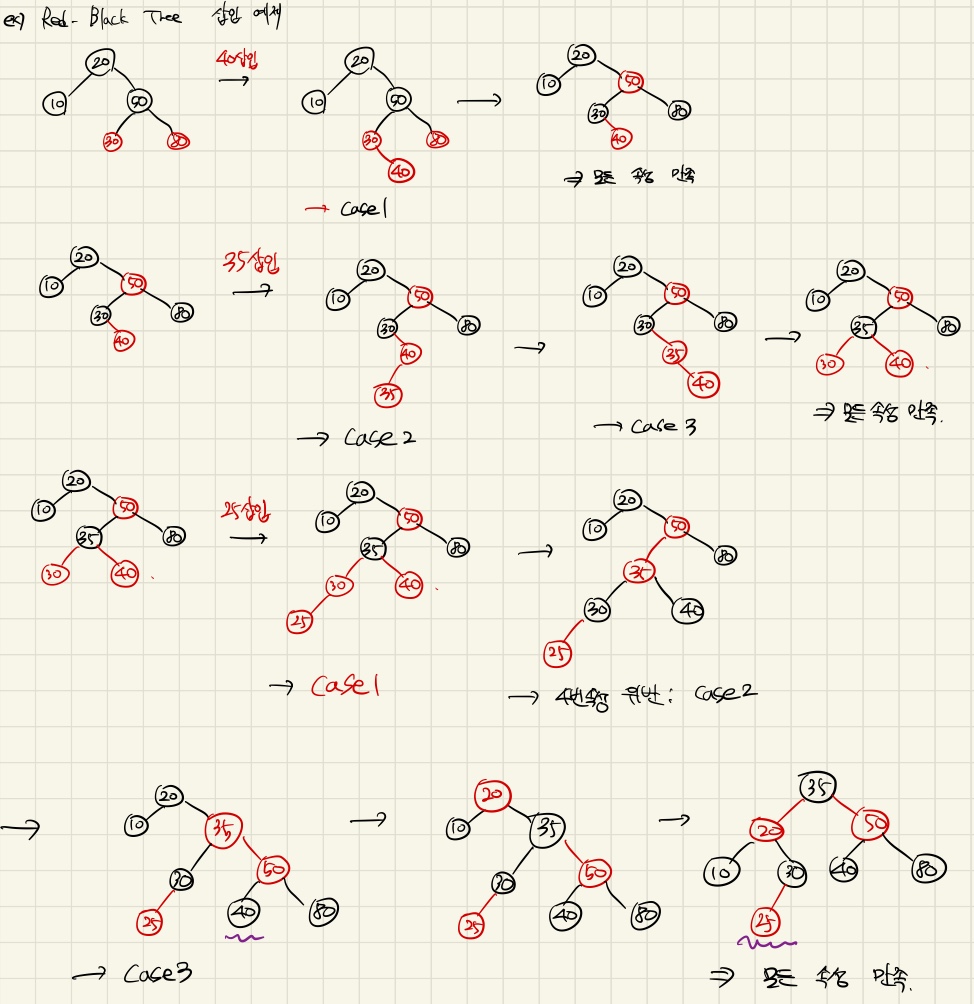 ex) Red-Black Tree 삽입 예제
20
10 50
30 80
40삽입 →
20
10 50
30 80
40
→ Case1
→
20
10 50
30 80
40
⇒ 모든 속성 만족
20
10 50
30 80
40
35삽입 →
20
10 50
30 80
40
35
→ Case2
→
20
10 50
30 80
35
40
→ Case3
→
20
10 50
35 80
30 40
⇒ 모든 속성 만족.
20
10 50
35 80
30 40
25삽입 →
20
10 50
35 80
30 40
25
→ Case1
→
20
10 50
35 80
30 40
25
→ 4번속성 위반: Case2
→
20
10 35
30 50
25 40 80
→ Case3
→
20
10 35
30 50
25 40 80
→
35
20 50
10 30 40 80
25
⇒ 모든 속성 만족.